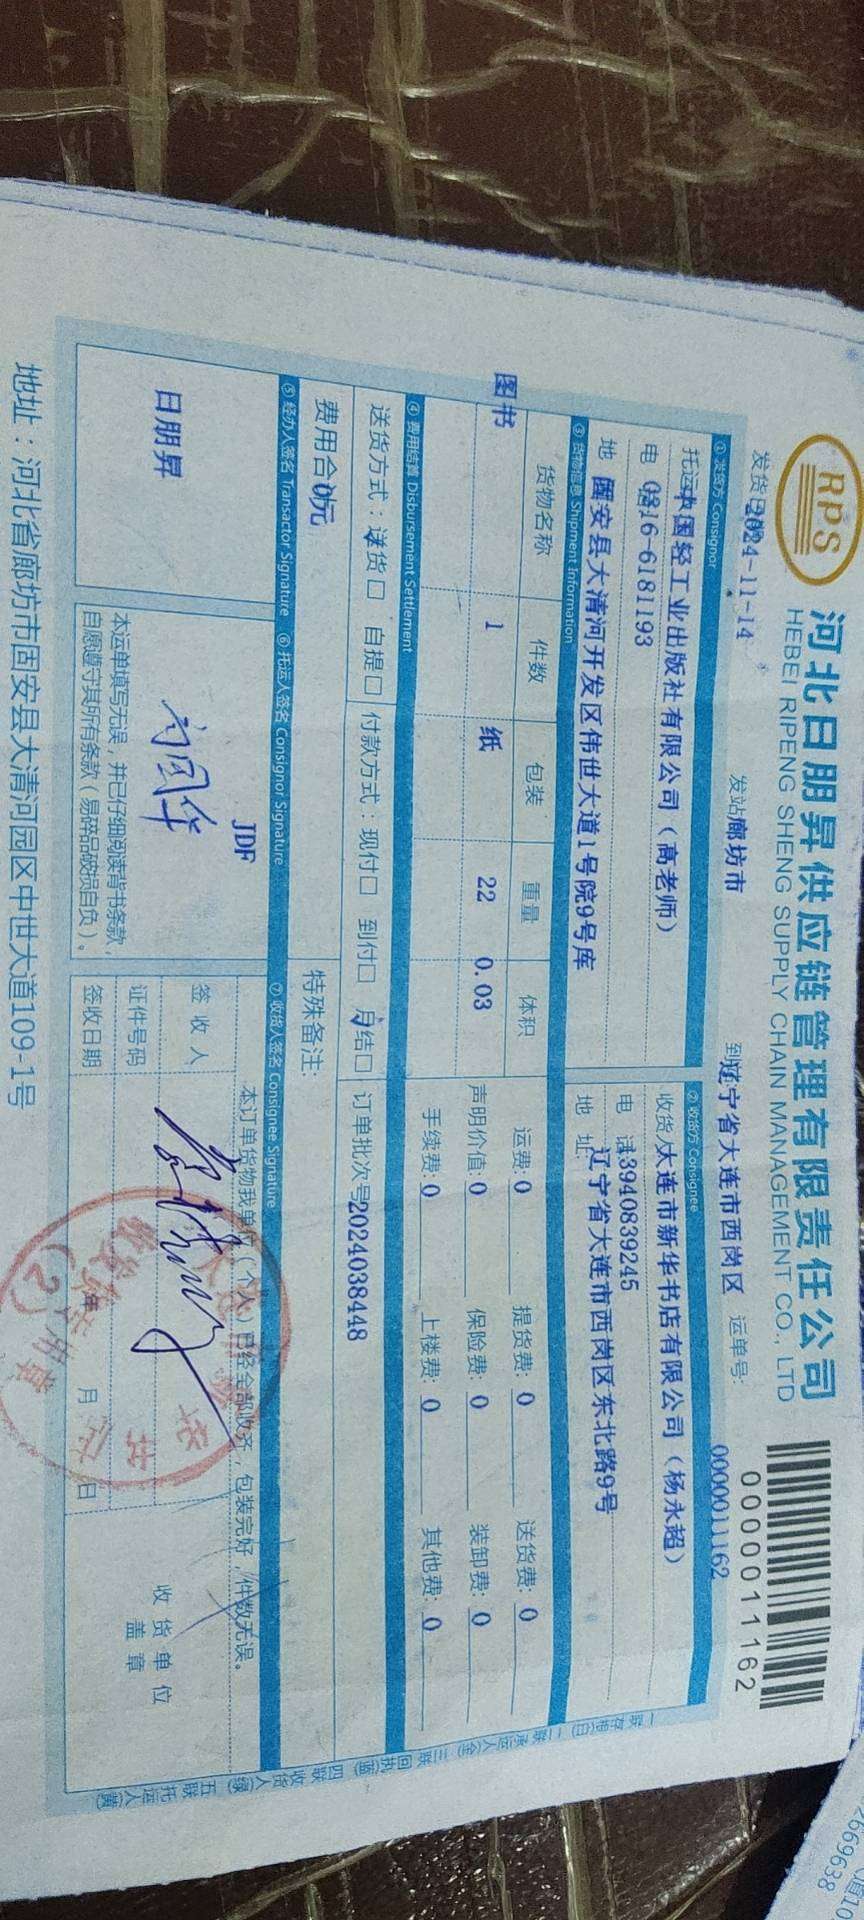 RPS
河北日朋昇供应链管理有限责任公司
HEBEI RIPENG SHENG SUPPLY CHAIN MANAGEMENT CO., LTD
0000011162
发货日期 2024-11-14 发站 廊坊市 到 辽宁省大连市西岗区 运单号: 0000011162
① 发货方 Consignor ② 收货方 Consignee
托运 中国轻工业出版社有限公司（高老师） 收货人 大连市新华书店有限公司（杨永超）
电 0316-6181193 电 13940839245
地 固安县大清河开发区伟世大道1号院9号库 地 址: 辽宁省大连市西岗区东北路9号
③ 货物信息 Shipment Information
货物名称 件数 包装 重量 体积 运费: 0 提货费: 0 送货费: 0
图书 1 纸 22 0.03 声明价值: 0 保险费: 0 装卸费: 0
手续费: 0 上楼费: 0 其他费: 0
④ 费用结算 Disbursement Settlement
送货方式：送货□ 自提□ 付款方式：现付□ 到付□ 月结□ 订单批次号 2024038448
费用合 0元 特殊备注:
⑤ 经办人签名 Transactor Signature ⑥ 托运人签名 Consignor Signature ⑦ 收货人签名 Consignee Signature
日朋昇
JDF
本运单填写无误，并已仔细阅读背书条款，
自愿遵守其所有条款（易碎品破损自负）。
本订单货物我单位（个人）已经全部收齐，包装完好，件数无误。
签收人
证件号码
签收日期 年 月 日
收货单位
盖章
(2)
一联存根(白) 二联承运人(金) 三联回执(蓝) 四联收货人(绿) 五联托运人(黄)
地址：河北省廊坊市固安县大清河园区中世大道109-1号